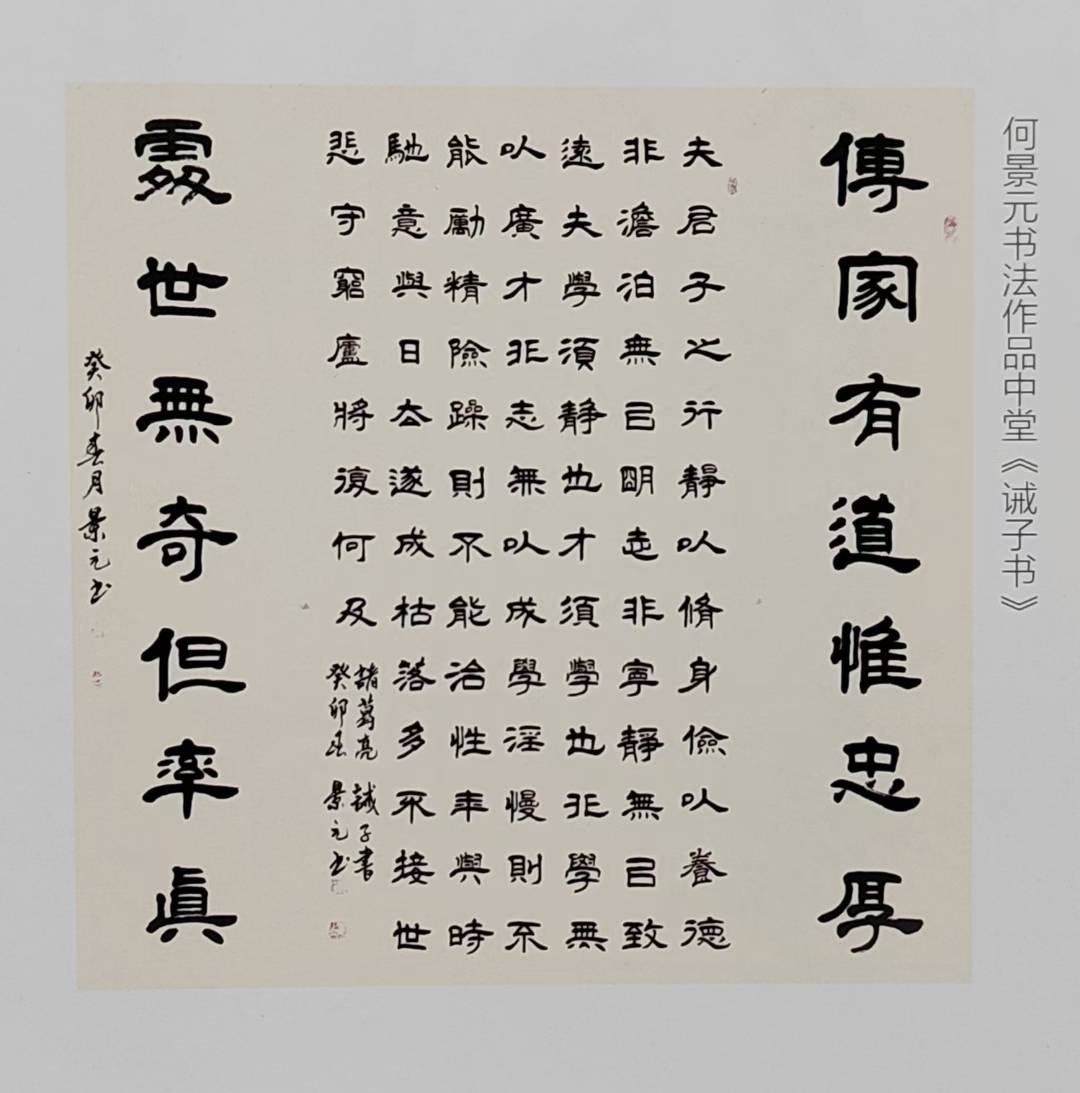 何景元书法作品中堂《诫子书》
傳家有道惟忠厚
夫君子之行靜以脩身儉以養德
非澹泊無㠯明志非寧靜無㠯致
遠夫學須静也才須學也非學無
以廣才非志無以成學淫慢則不
能勵精險躁則不能治性年與時
馳意與日去遂成枯落多不接世
悲守窮廬將復何及
諸葛亮 誡子書
癸卯春 景元书
處世無奇但率真
癸卯春月景元书